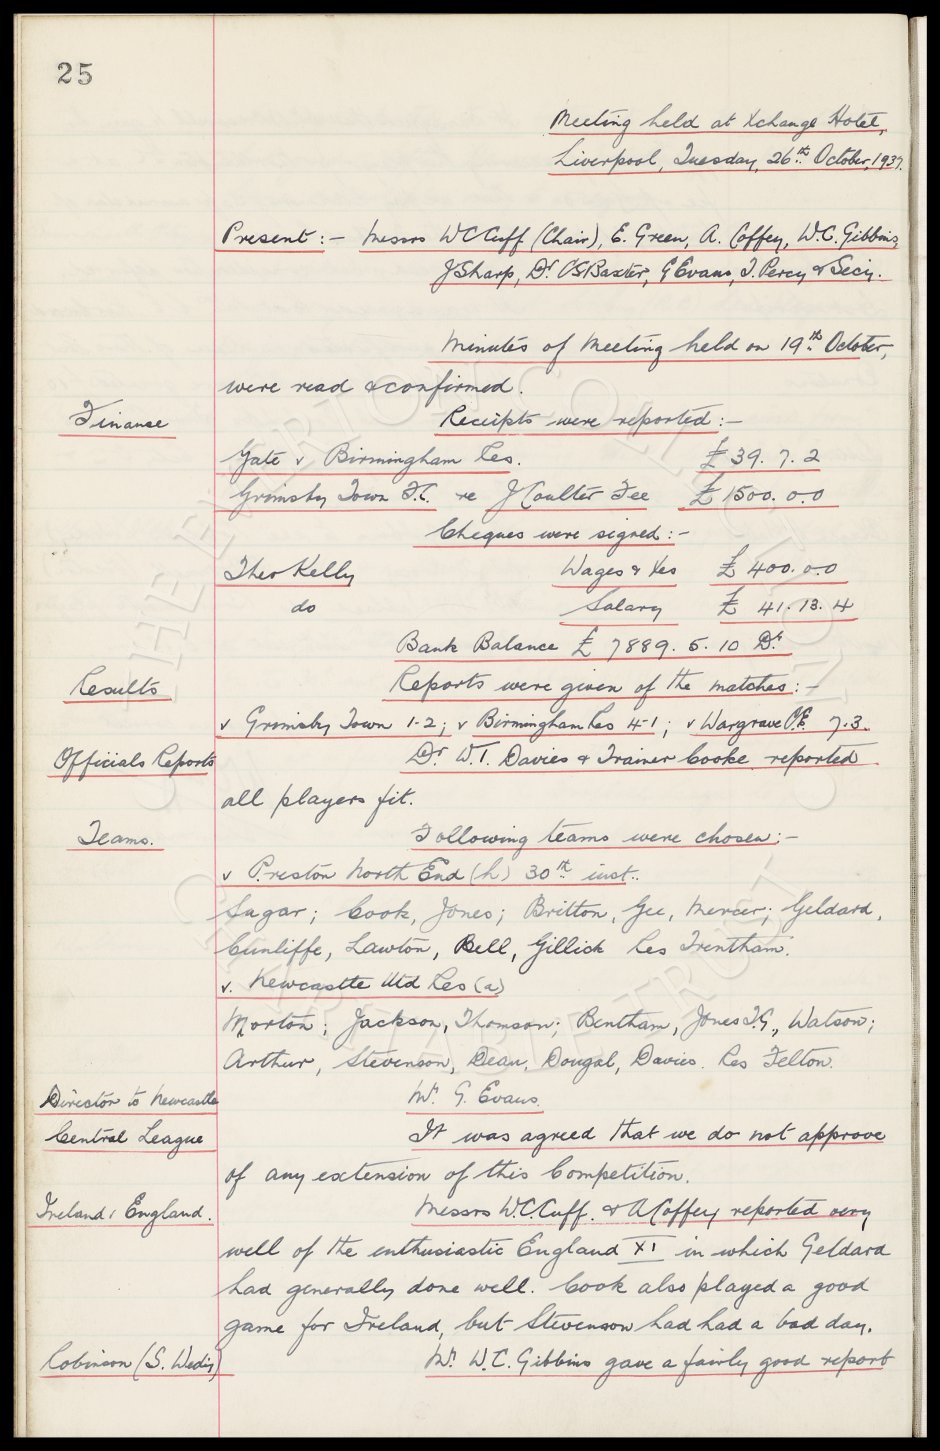 25
Meeting held at Xchange Hotel,
Liverpool, Tuesday, 26th October, 1937.
Present :- Messrs W C Cuff (Chair), E. Green, A. Coffey, W.C. Gibbins,
J Sharp, Dr C S Baxter, G Evans, T. Percy & Secy.
Minutes of Meeting held on 19th October,
were read & confirmed.
Finance
Receipts were reported :-
Gate v Birmingham Res. £ 39. 7. 2
Grimsby Town F.C. re J Coulter Fee £ 1500. 0. 0
Cheques were signed :-
Theo Kelly Wages & Xes £ 400. 0. 0
do Salary £ 41. 13. 4
Bank Balance £ 7889. 5. 10 Dr
Results
Reports were given of the matches :-
v Grimsby Town 1-2; v Birmingham Res 4-1; v Wargrave O.E. 7.3.
Officials Reports
Dr W.T. Davies & Trainer Cooke reported
all players fit.
Teams.
Following teams were chosen :-
v Preston North End (h) 30th inst.
Sagar; Cook, Jones; Britton, Gee, Mercer; Geldard,
Cunliffe, Lawton, Bell, Gillick Res Trentham.
v. Newcastle Utd Res (a)
Morton; Jackson, Thomson; Bentham, Jones T.G., Watson;
Arthur, Stevenson, Dean, Dougal, Davies. Res Felton.
Director to Newcastle
Mr G. Evans.
Central League
It was agreed that we do not approve
of any extension of this Competition.
Ireland v England.
Messrs W.C. Cuff. & A Coffey reported very
well of the enthusiastic England XI in which Geldard
had generally done well. Cook also played a good
game for Ireland, but Stevenson had had a bad day.
Robinson (S. Wedy)
Mr W.C. Gibbins gave a fairly good report
THE EVERTON COLLECTION
CHARITABLE TRUST